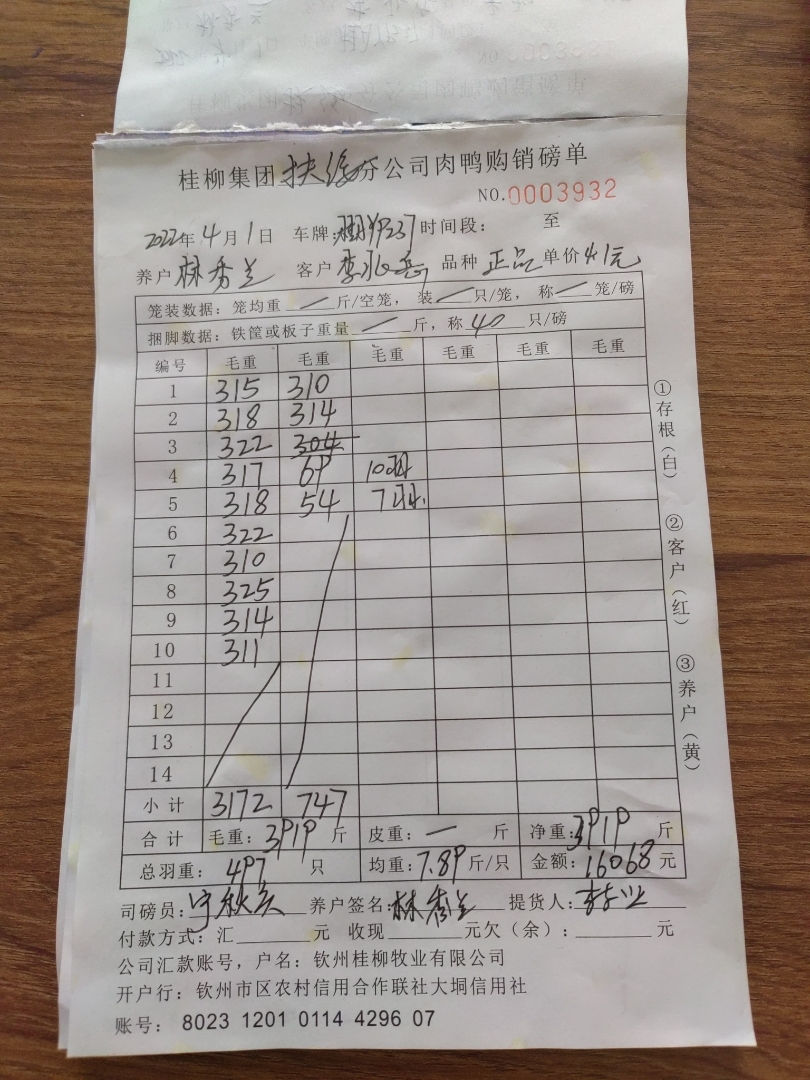 桂柳集团扶绥分公司肉鸭购销磅单
NO.0003932
2022年4月1日 车牌: 时间段: 至
养户林秀兰 客户李 品种正品 单价4.1元
笼装数据: 笼均重 — 斤/空笼, 装 — 只/笼, 称 — 笼/磅
捆脚数据: 铁筐或板子重量 — 斤, 称 40 只/磅
编号 毛重 毛重 毛重 毛重 毛重 毛重
1 315 310
2 318 314
3 322 304
4 317 69 10羽
5 318 54 7羽
6 322
7 310
8 325
9 314
10 311
11
12
13
14
小计 3172 747
合计 毛重: 3919 斤 皮重: — 斤 净重: 3919 斤
总羽重: 497 只 均重: 7.89 斤/只 金额: 16068 元
司磅员: 养户签名: 林秀兰 提货人:
付款方式: 汇 元 收现 元欠(余): 元
公司汇款账号, 户名: 钦州桂柳牧业有限公司
开户行: 钦州市区农村信用合作联社大垌信用社
账号: 8023 1201 0114 4296 07
①存根(白)
②客户(红)
③养户(黄)